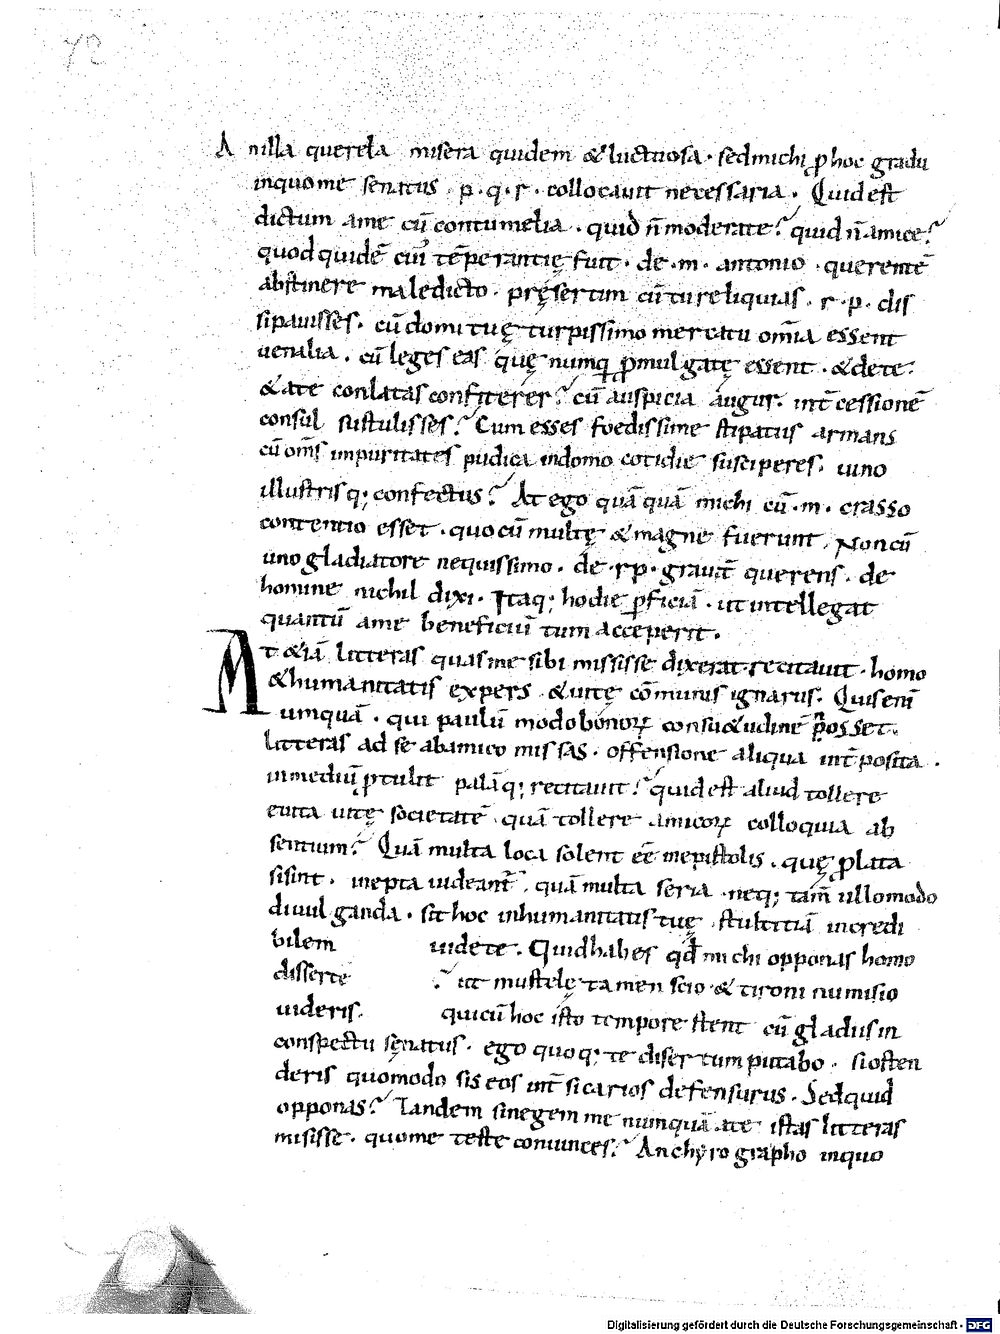 72
A nilla querela misera quidem & luctuosa · sedmichi ꝓ hoc gradu
inquome senatus · p · q · r · collocauit necessaria · Quid est
dictum ame cū contumelia · quid n̄ moderate? quid n̄ amice?
quod quidē cuī tēperantię fuit · de · m · antonio · querentē
abstinere maledicto · pręsertim cū tu reliquias · r · p · dis
sipauisses · cū domi tuę turpissimo mercatu om̄a essent
uenalia · cū leges eas quę numq̄ ꝓmulgatę essent · & dete ·
& ate conlatas confiterer? cū auspicia augur · int̄cessionē
consul sustulisses? Cum esses foedissime stipatus armatis
cū om̄s impuritates pudica indomo cotidie susciperes · uino
illustrisq; confectus? At ego quāquā michi cū · m · crasso
contentio esset · quocū multę & magne fuerunt · Non cū
uno gladiatore nequissimo · de · rp · grauit̄ querens · de
homine nichil dixi · Itaq; hodie ꝑficiā · ut intellegat
quantū ame beneficiū tum acceperit ·
At & iā litteras quas me sibi misisse dixerat · recitauit · homo
& humanitatis expers · & uitę cōmunis ignarus · Quis eni
umquā · qui paulū modo bonoꝝ consu&udinē posset ·
litteras ad se abamico missas · offensione aliqua int̄posita ·
inmediū ꝓtulit palāq; recitauit? quid est aliud tollere
euita uitę societatē quā tollere amicoꝝ colloquia ab
sentium? Quā multa loca solent eē inepistolis · quę ꝓlata
sisint · inepta uideant̄ · quā multa seria · neq; tam̄ ullomodo
diuulganda · sit hoc inhumanitatis tuę stultitiā incredi
bilem uidete · Quid habes qd̄ michi opponas homo
diserte ? ut mustelę tamen scio & tironi numisio
uideris · qui cū hoc isto tempore stent cū gladiis in
conspectu senatus · ego quoq; te disertum putabo · si osten
deris quomodo sis eos int̄ sicarios defensurus · Sed quid
opponas? Tandem sinegem me numquā ate istas litteras
misisse · quome teste conuinces? An chyrographo inquo
Digitalisierung gefördert durch die Deutsche Forschungsgemeinschaft · DFG